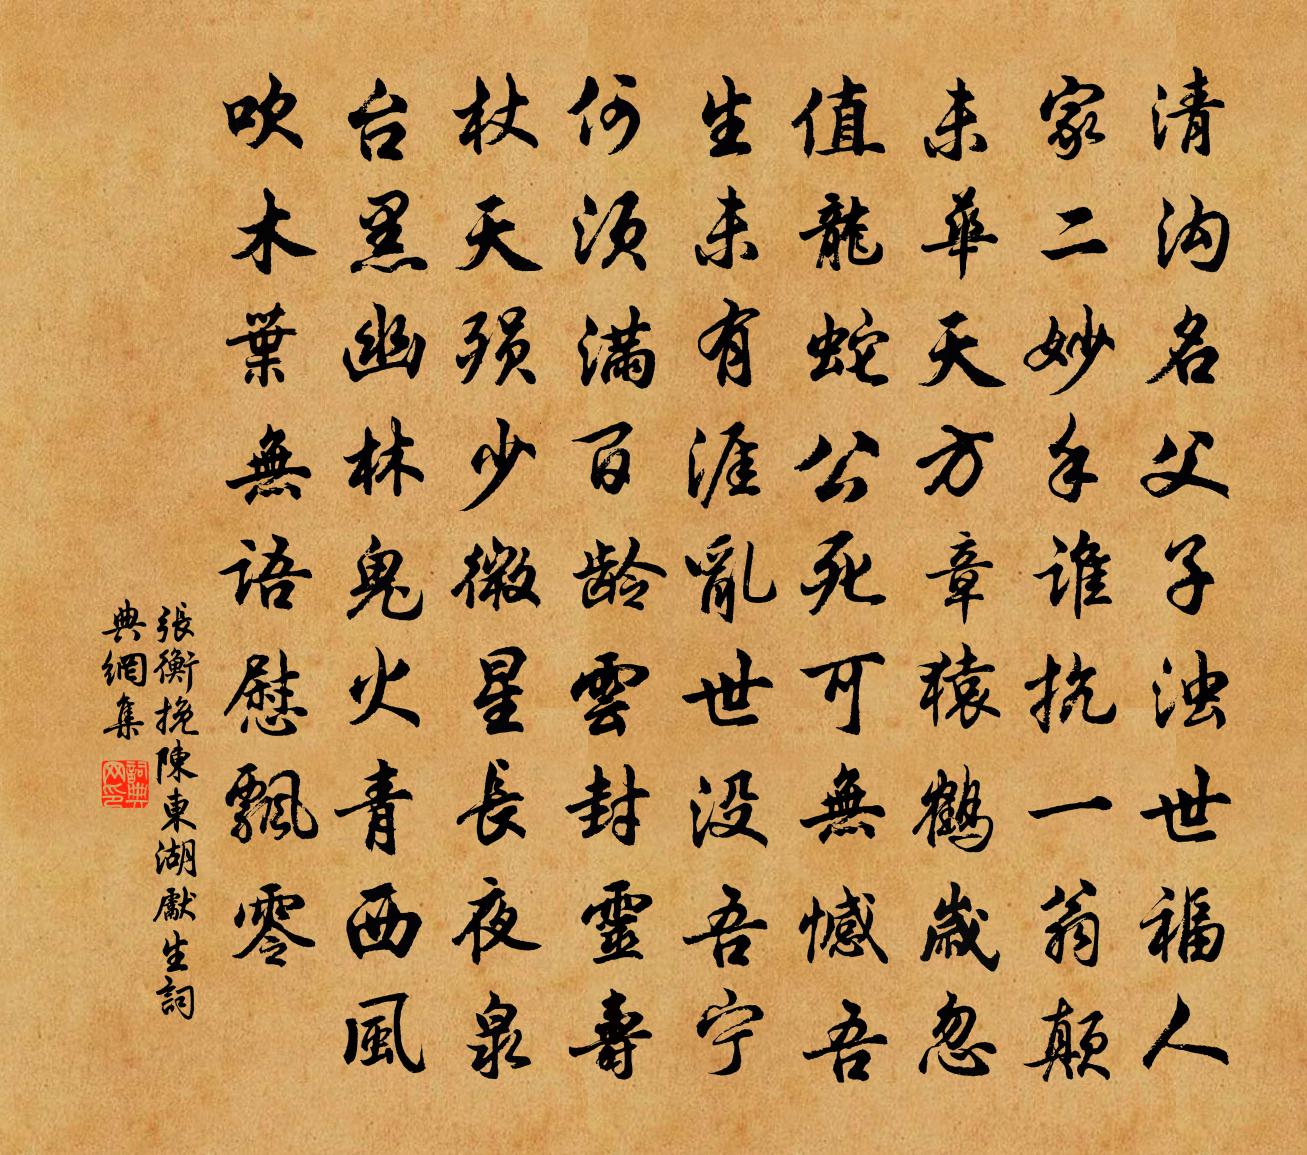 清沟名父子浊世福人
家二妙手谁抗一翁颠
未華天方章猿鹤歲忽
值龍蛇公死可無憾吾
生未有涯亂世没吾宁
何须满百龄雲封靈壽
杖天殒少微星長夜泉
台黑幽林鬼火青西風
吹木葉無語慰飄零
張衡挽陳東湖獻生詞
典網集
詞典网印